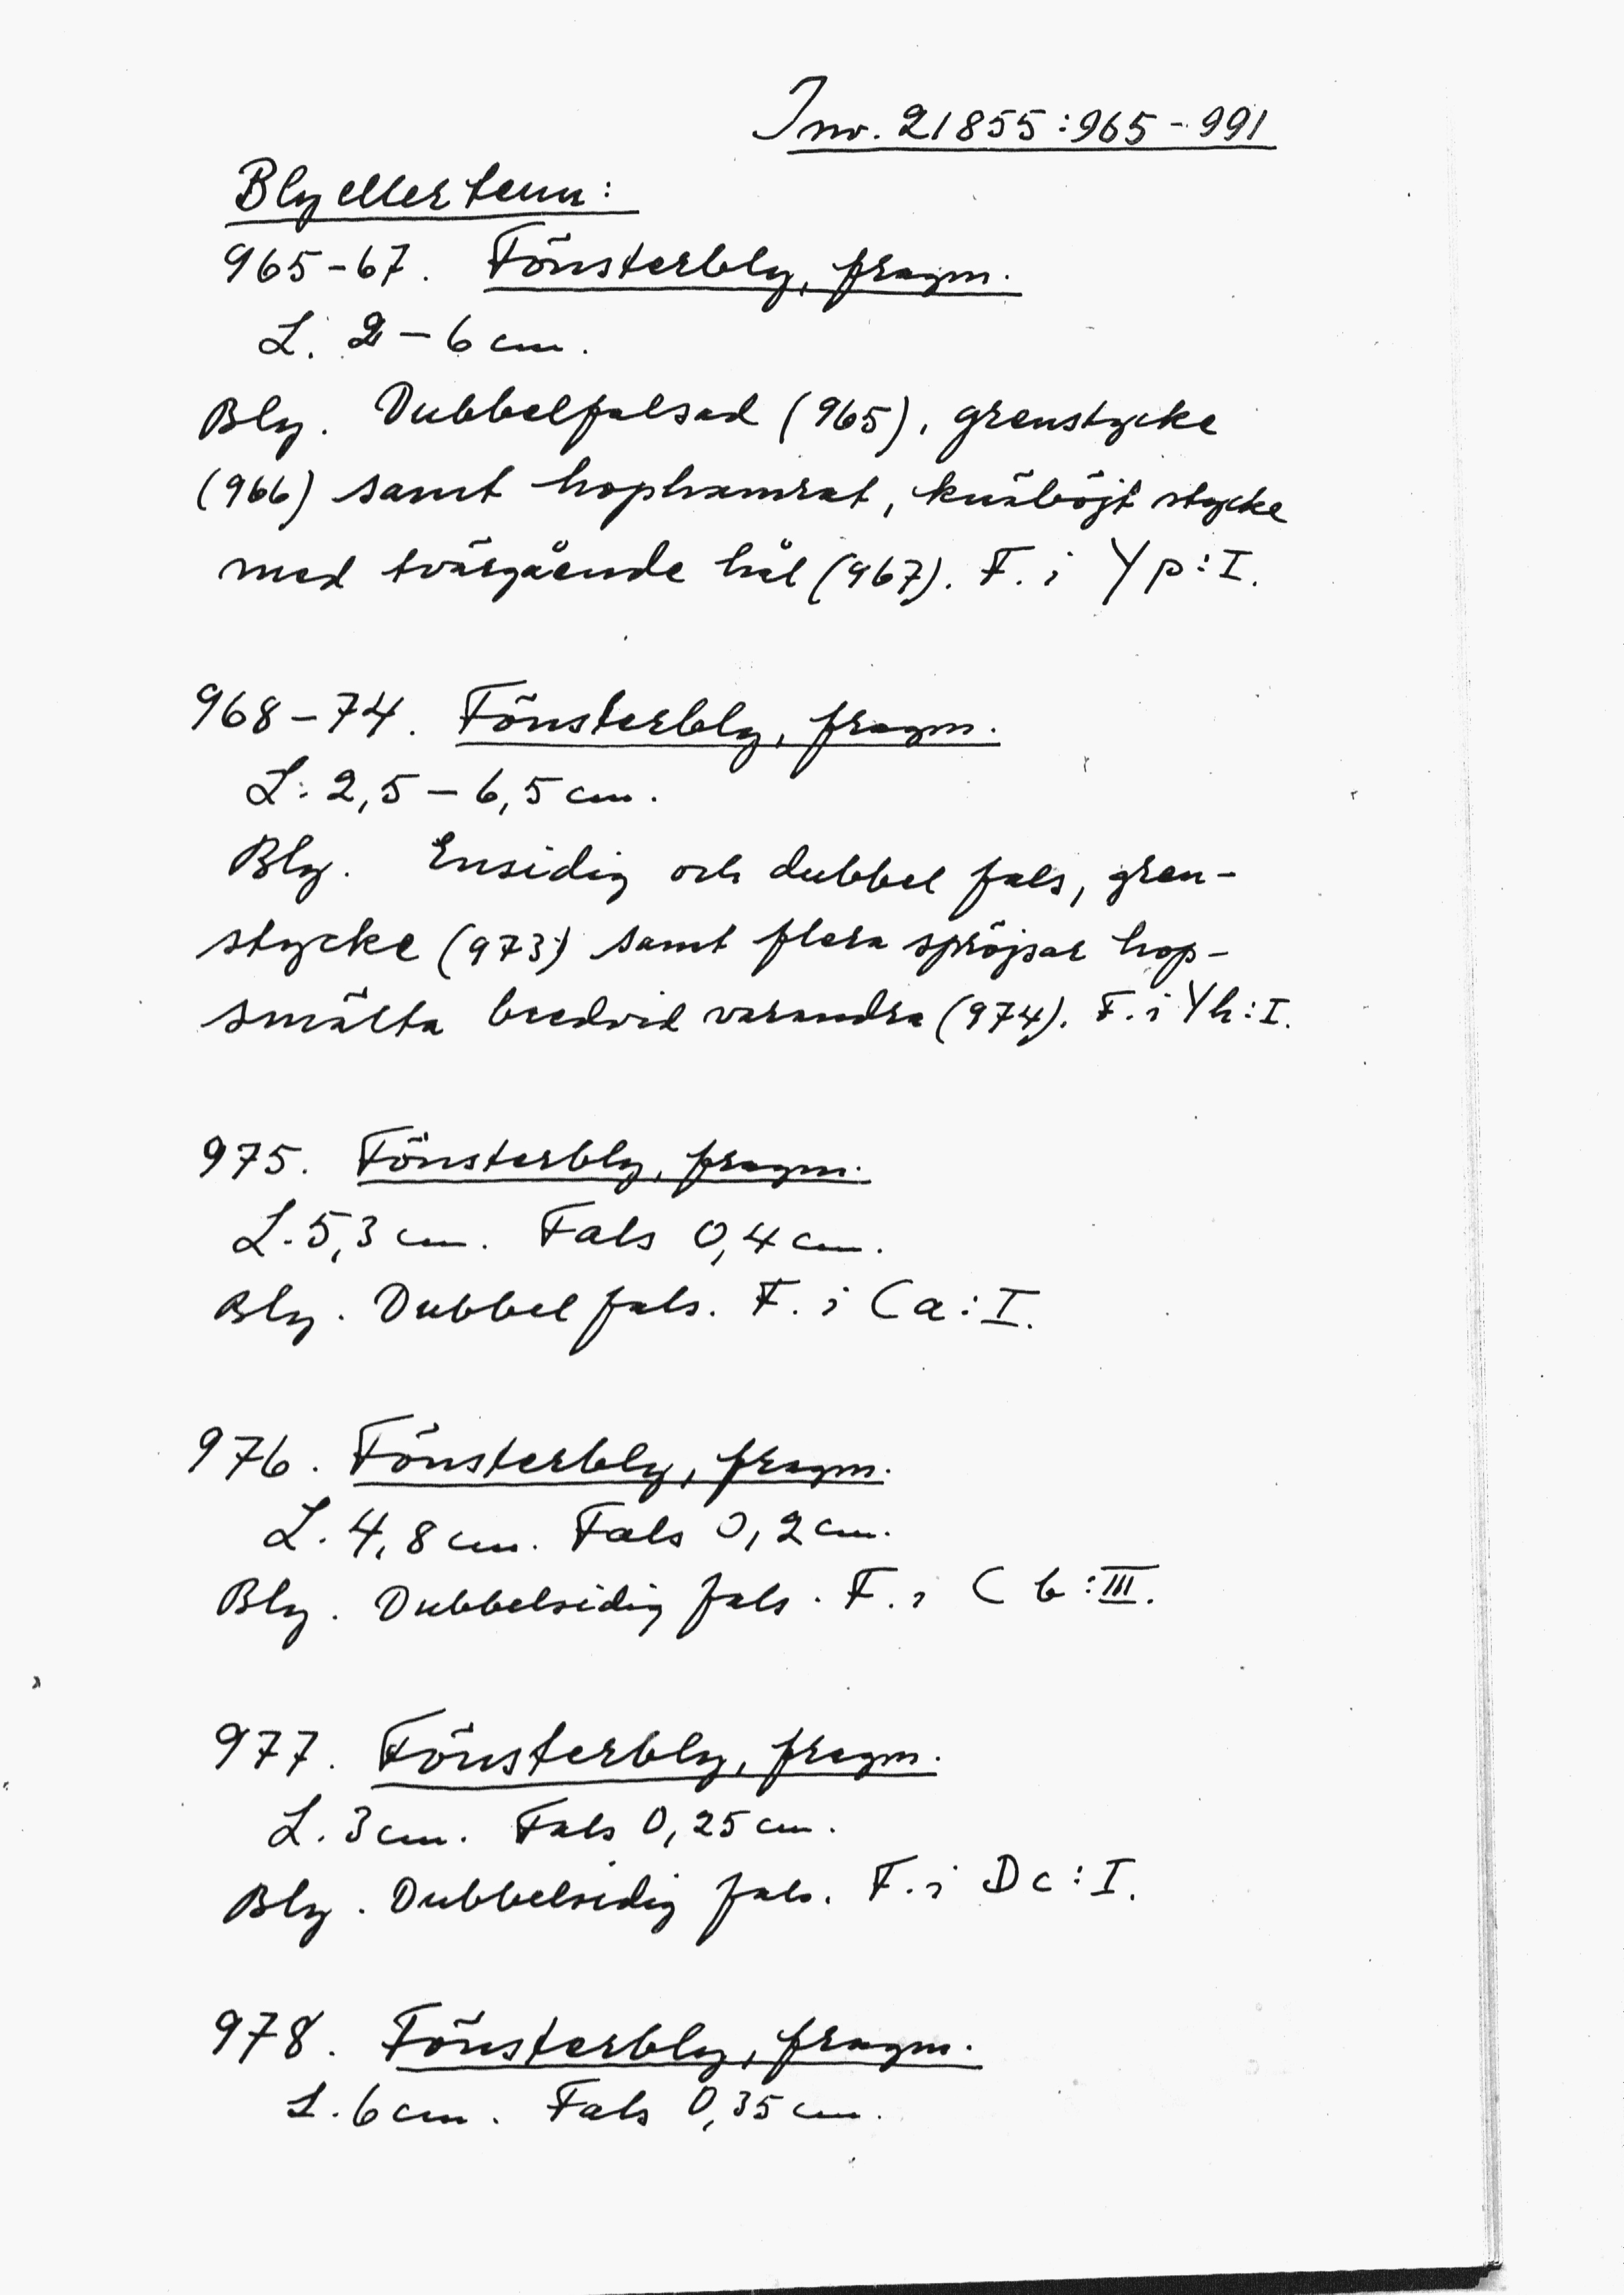 Inv. 21855:965-991
Bly eller tenn:
965-67. Fönsterbly, fragm.
L. 2-6 cm.
Bly. Dubbelfalsad (965), grenstycke
(966) samt hophamrat, knäböjt stycke
med tvärgående hål (967). F. i Yp:I.
968-74. Fönsterbly, fragm.
L: 2,5-6,5 cm.
Bly. Ensidig och dubbel fals, gren-
stycke (973) samt flera spröjsar hop-
smälta bredvid varandra (974). F. i Yh:I.
975. Fönsterbly, fragm.
L. 5,3 cm. Fals 0,4 cm.
Bly. Dubbel fals. F. i Ca:I.
976. Fönsterbly, fragm.
L. 4,8 cm. Fals 0,2 cm.
Bly. Dubbelsidig fals. F. i Cb:III.
977. Fönsterbly, fragm.
L. 3 cm. Fals 0,25 cm.
Bly. Dubbelsidig fals. F. i Dc:I.
978. Fönsterbly, fragm.
L. 6 cm. Fals 0,35 cm.